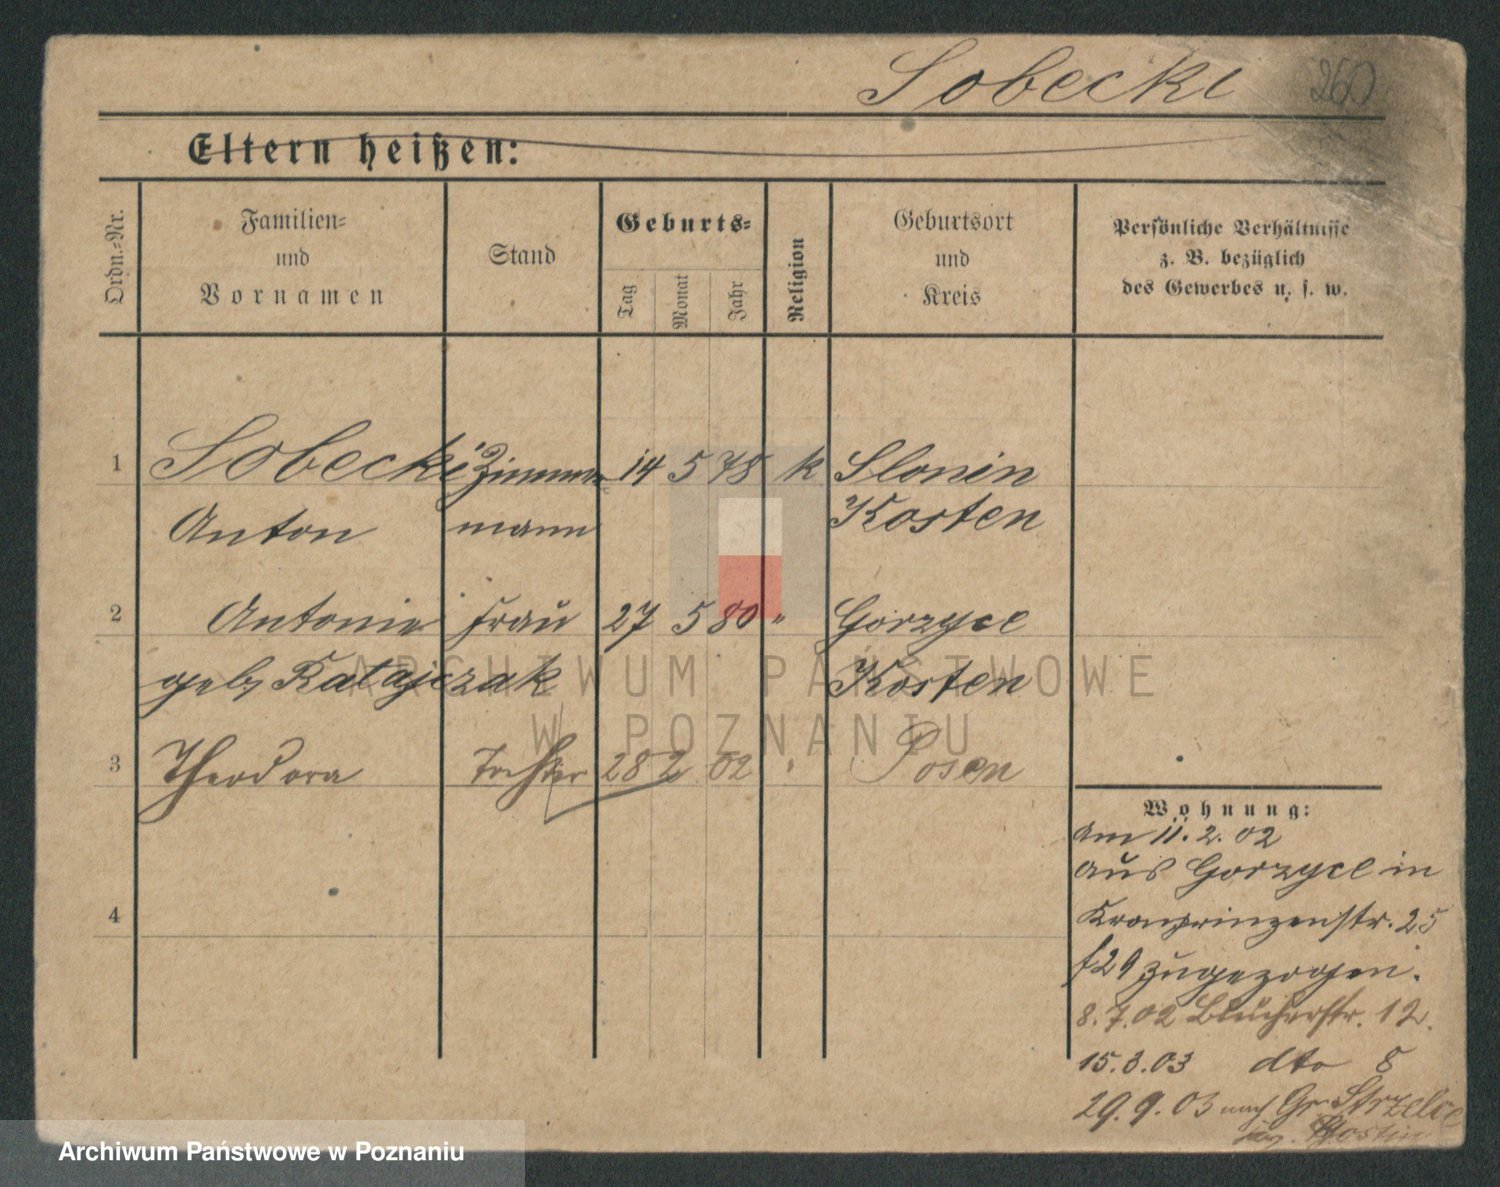 Sobecki 260
Eltern heißen:
Ordn.-Nr.
Familien-
und
Vornamen
Stand
Geburts-
Tag
Monat
Jahr
Religion
Geburtsort
und
Kreis
Persönliche Verhältnisse
z. B. bezüglich
des Gewerbes u. s. w.
1 Sobecki Zimmer 14 5 78 k Slonin
Anton mann Kosten
2 Antonie Frau 27 5 80 " Gorzyce
geb. Ratajczak Kosten
3 Theodora Tochter 28 2 02 " Posen
4
Wohnung:
am 11.2.02
aus Gorzyce in
Kronprinzenstr. 25
f 29 zugezogen.
8.7.02 Blücherstr. 12.
15.3.03 dto 8
29.9.03 nach Gr. Strzelce
Gostin
ARCHIWUM PAŃSTWOWE
W POZNANIU
Archiwum Państwowe w Poznaniu